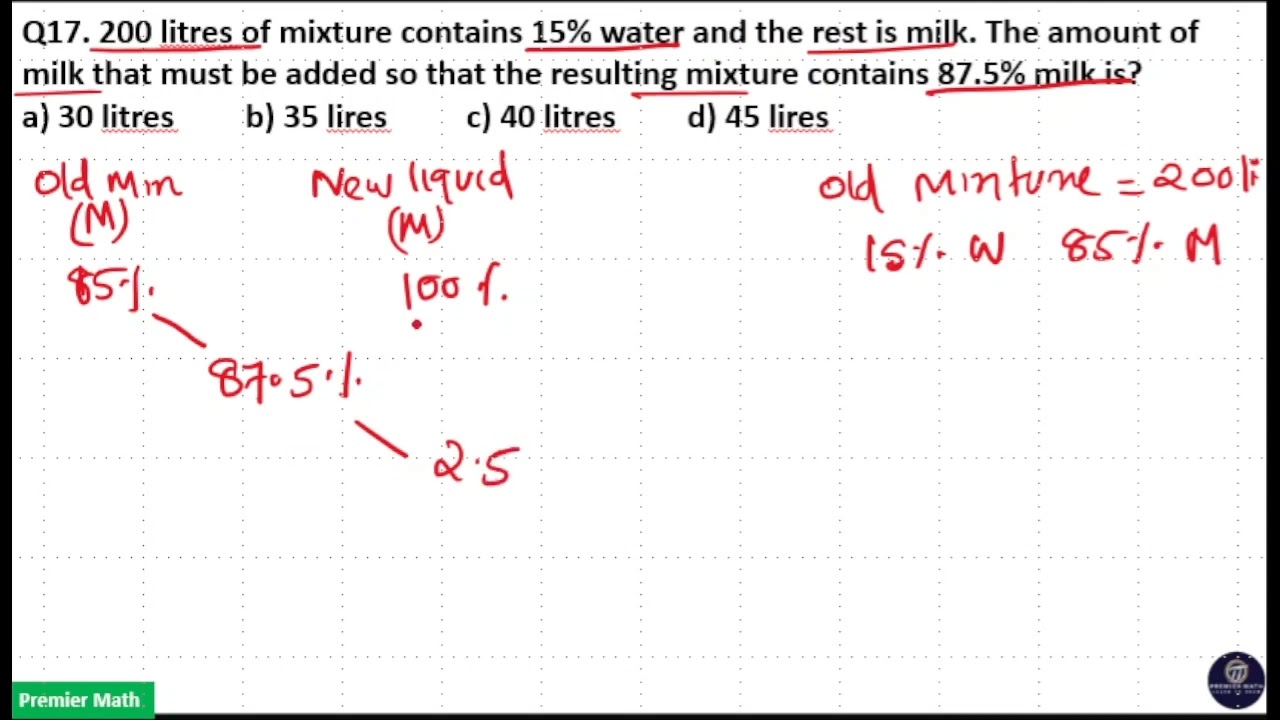 Q17. 200 litres of mixture contains 15% water and the rest is milk. The amount of
milk that must be added so that the resulting mixture contains 87.5% milk is?
a) 30 litres b) 35 lires c) 40 litres d) 45 lires
Old Mix New liquid Old Mixture = 200 li
(M) (M) 15% W 85% M
85% 100%
87.5%
2.5
Premier Math
PREMIER MATH